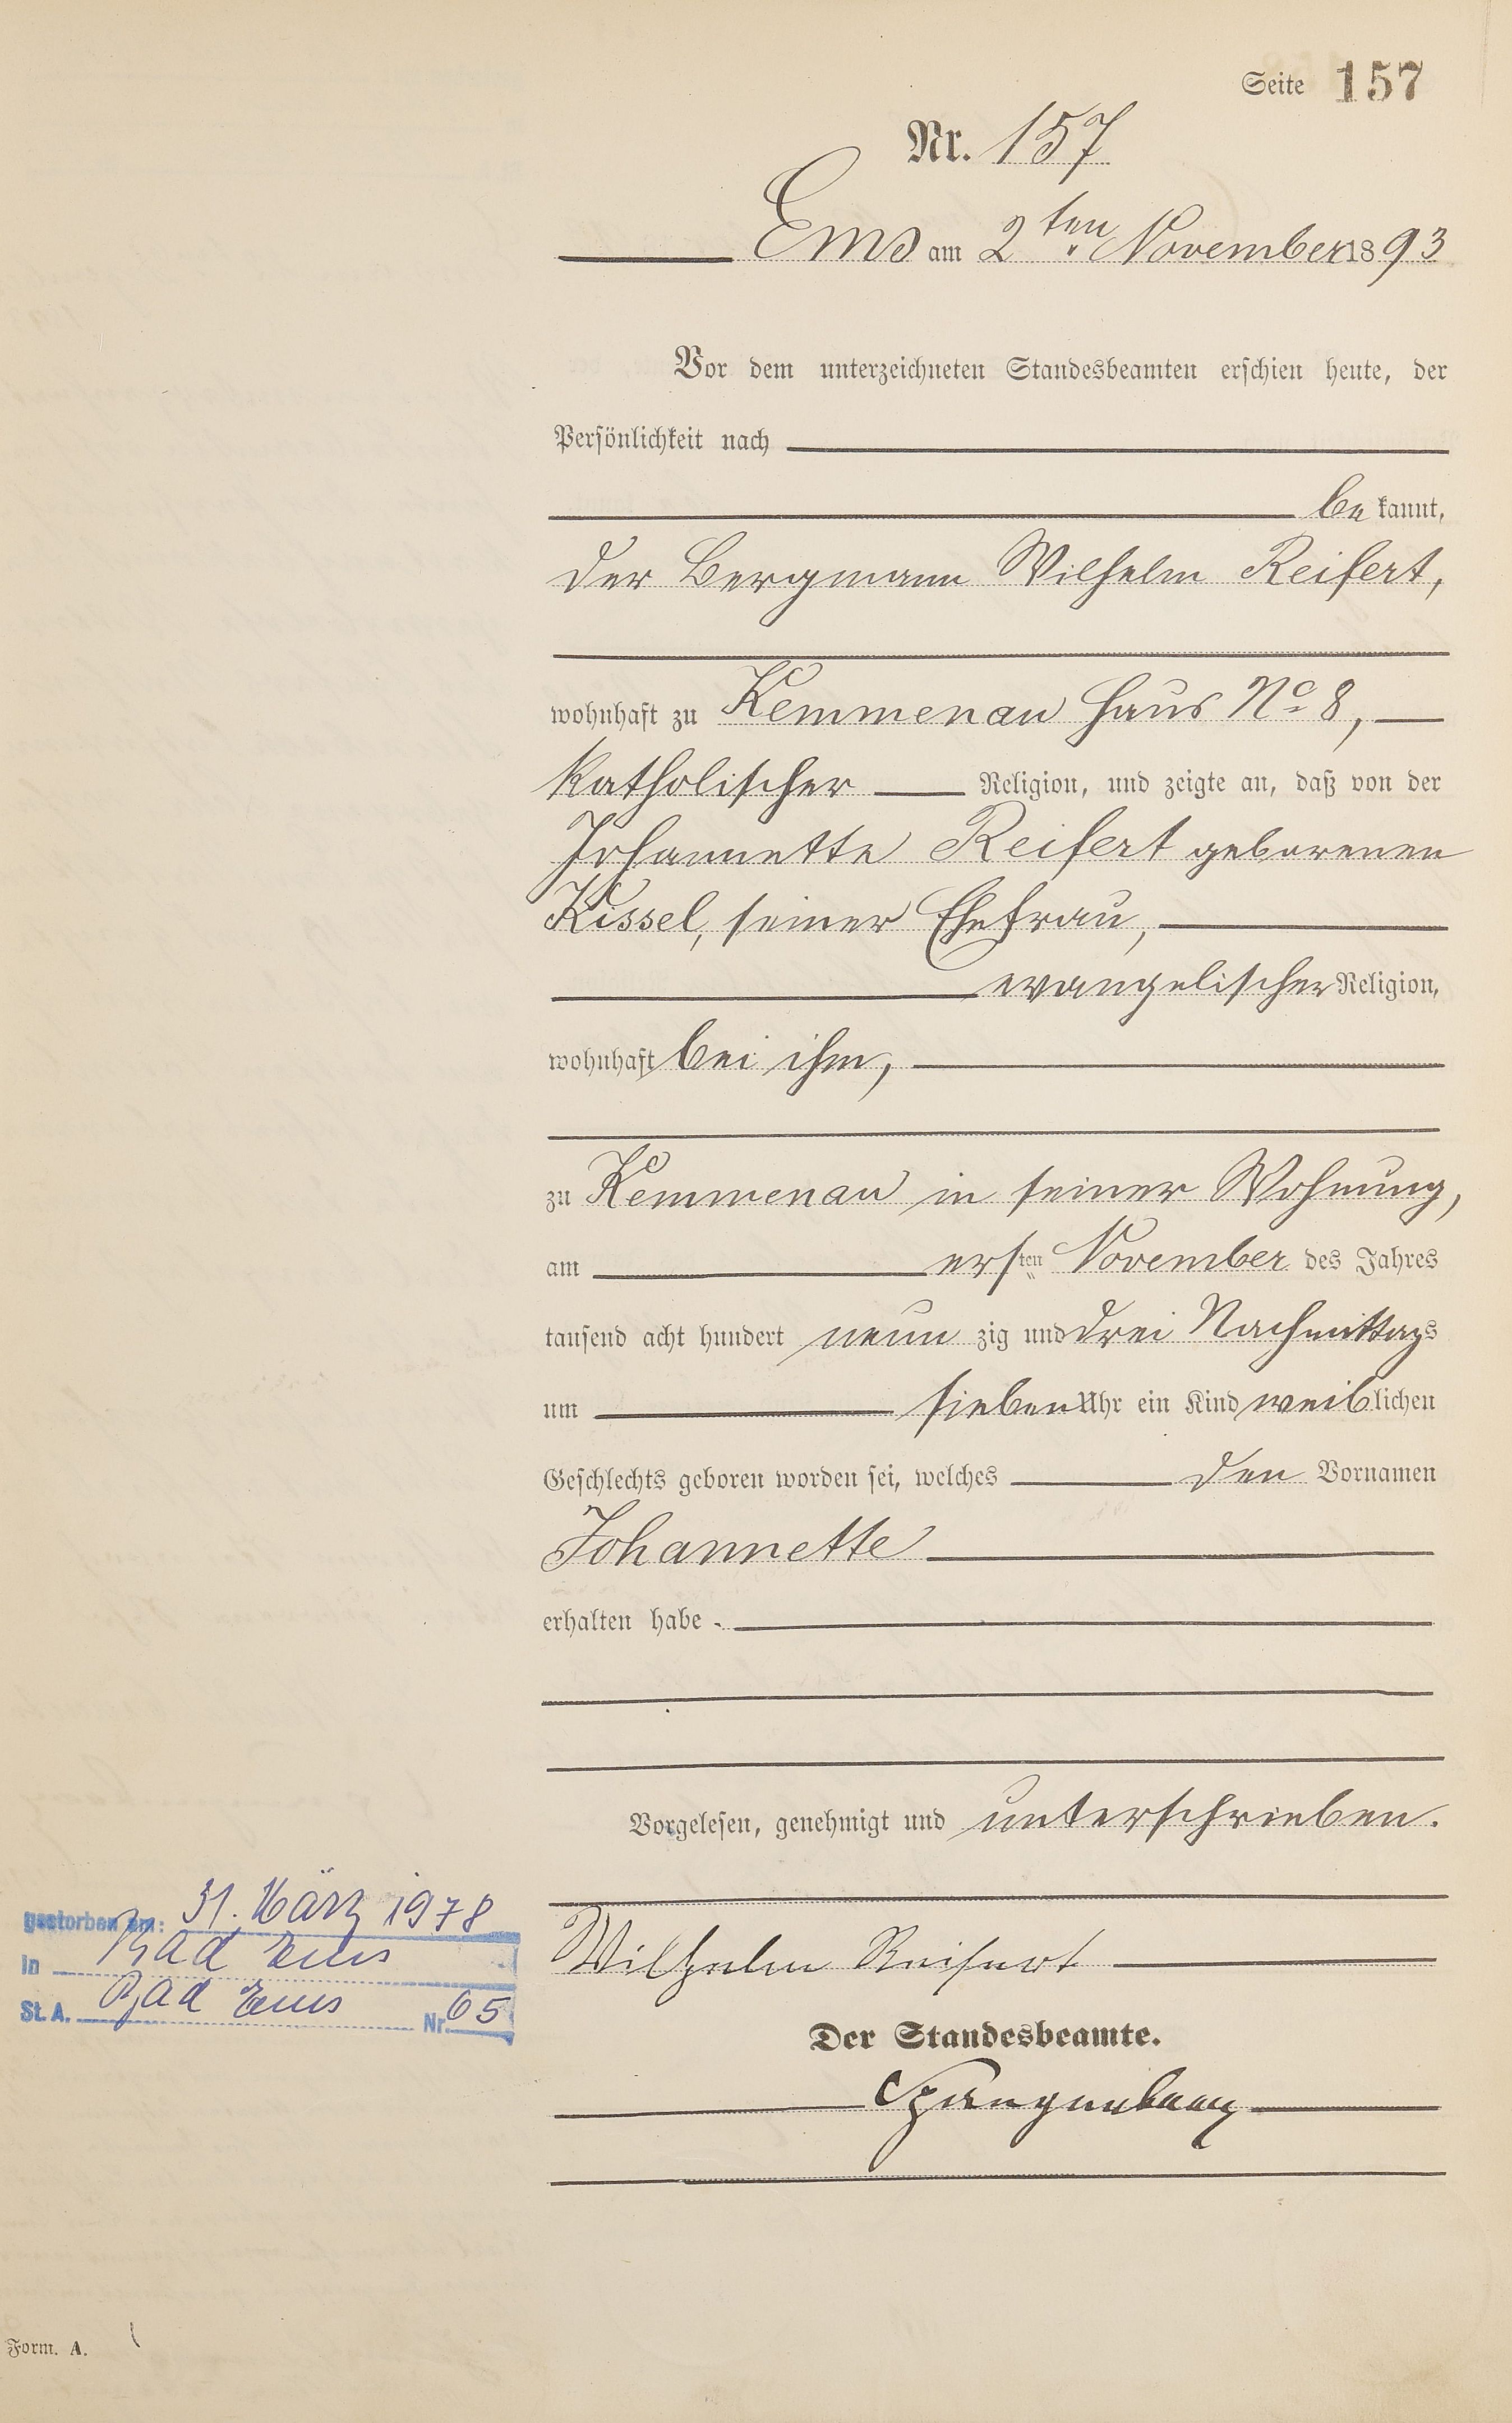 Seite 157
Nr. 157
Ems am 2ten November 1893
Vor dem unterzeichneten Standesbeamten erschien heute, der
Persönlichkeit nach
bekannt,
der Bergmann Wilhelm Reifert,
wohnhaft zu Kemmenau Haus No 8,
katholischer Religion, und zeigte an, daß von der
Johannette Reifert geborenen
Kissel, seiner Ehefrau,
evangelischer Religion,
wohnhaft bei ihm,
zu Kemmenau in seiner Wohnung,
am ersten November des Jahres
tausend acht hundert neunzig und drei Nachmittags
um sieben Uhr ein Kind weiblichen
Geschlechts geboren worden sei, welches den Vornamen
Johannette
erhalten habe
Vorgelesen, genehmigt und unterschrieben.
Wilhelm Reifert
Der Standesbeamte.
Spangenberg
gestorben am: 31. März 1978
in Bad Ems
St. A. Bad Ems Nr. 65
Form. A.